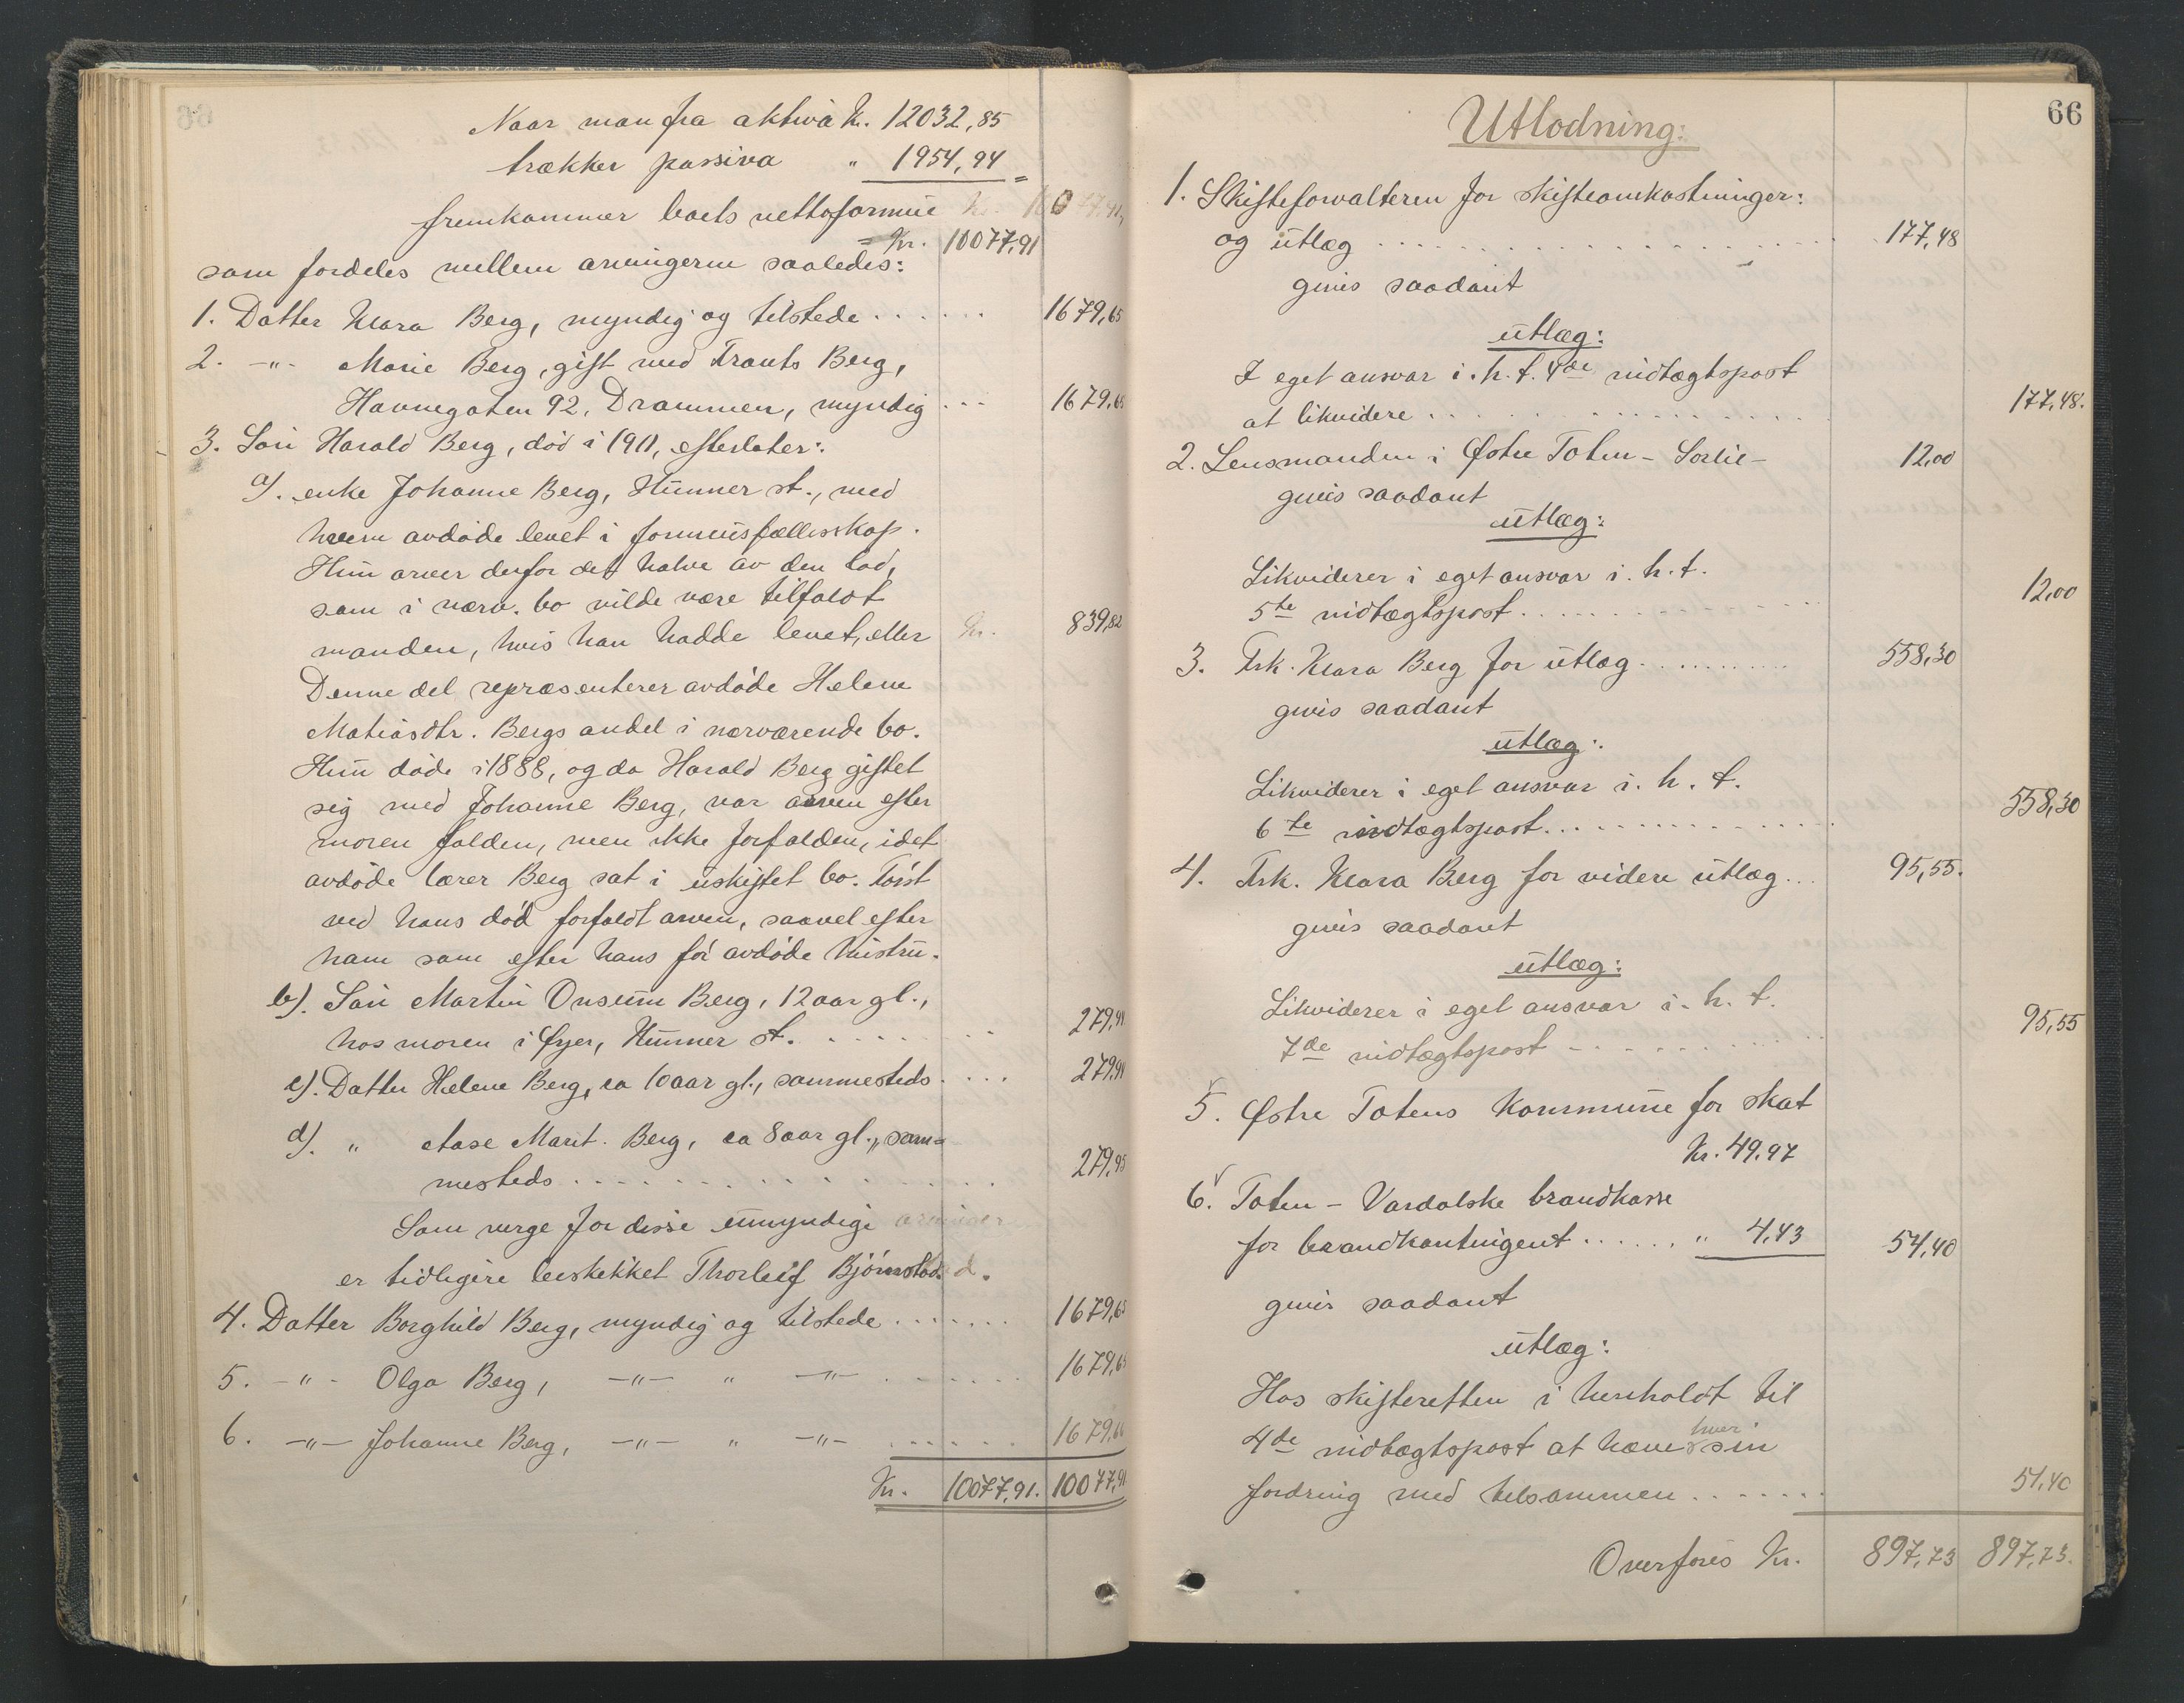 Naar man fra aktiva kr. 12032,85
trækker passiva " 1954,94
fremkommer boets nettoformue
= Kr. 10077,91
som fordeles mellem arvingerne saaledes:
1. Datter Klara Berg, myndig og tilstede ...... 1679,65
2. -"- Marie Berg, gift med Frants Berg,
Havnegaten 92, Drammen, myndig ... 1679,65
3. Søn Harald Berg, død i 1911, efterlater:
a). enke Johanne Berg, Hunner st., med
hvem avdøde levet i formuesfællesskap.
Hun arver derfor det halve av den lod,
som i nærv. bo vilde være tilfaldt
manden, hvis han hadde levet, eller kr. 839,82
Denne del repræsenterer avdøde Helene
Matiasdtr. Bergs andel i nærværende bo.
Hun døde i 1888, og da Harald Berg giftet
sig med Johanne Berg, var arven efter
moren falden, men ikke forfalden, idet
avdøde lærer Berg sat i uskiftet bo. Først
ved hans død forfaldt arven, saavel efter
ham som efter hans før avdøde hustru.
b). Søn Martin Onsum Berg, 12 aar gl.,
hos moren i Øyer, Hunner st. ...... 279,94
c). Datter Helene Berg, ca 10 aar gl., sammesteds .... 279,94
d). " Aase Marit Berg, ca 8 aar gl., sam=
mesteds ............ 279,95
Som verge for disse umyndige arvinger
er tidligere beskikket Thorleif Bjørnstad.
4. Datter Borghild Berg, myndig og tilstede ....... 1679,65
5. -"- Olga Berg, -"- " -"- ....... 1679,65
6. -"- Johanne Berg, -"- " -"- ...... 1679,66
Kr. 10077,91. 10077,91
66
Utlodning:
1. Skifteforvalteren for skifteomkostninger:
og utlæg .................. 177,48
gives saadant
utlæg:
I eget ansvar i. h. t. 4de indtægtspost
at likvidere .................. 177,48.
2. Lensmanden i Østre Toten - Sørlie - 12,00
gives saadant
utlæg:
Likviderer i eget ansvar i. h. t.
5te indtægtspost .............. 12,00
3. Frk. Klara Berg for utlæg .......... 558,30
gives saadant
utlæg:
Likviderer i eget ansvar i. h. t.
6te indtægtspost .............. 558,30
4. Frk. Klara Berg for videre utlæg ... 95,55.
gives saadant
utlæg:
Likviderer i eget ansvar i. h. t.
7de indtægtspost ............. 95,55
5. Østre Totens Kommune for skat
Kr. 49,97
6. Toten - Vardalske brandkasse
for brandkontingent ...... " 4,43 54,40
gives saadant
utlæg:
Hos skifteretten i henhold til
4de indtægtspost at hæve hver sin
fordring med tilsammen ....... 54,40
Overføres Kr. 897,73 897,73.